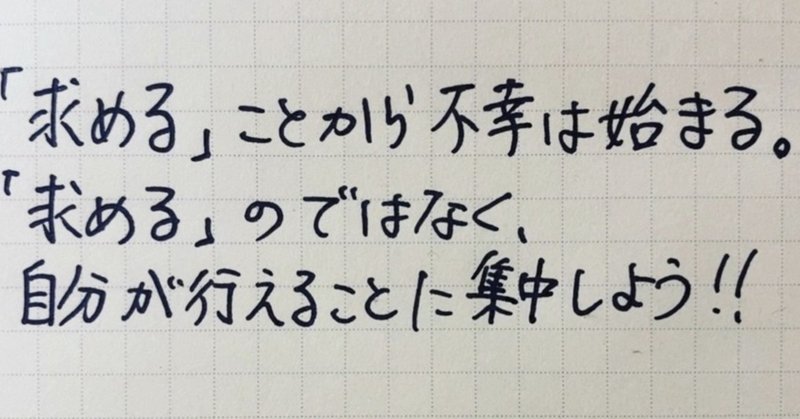 「求める」ことから不幸は始まる。
「求める」のではなく、
自分が行えることに集中しよう!!